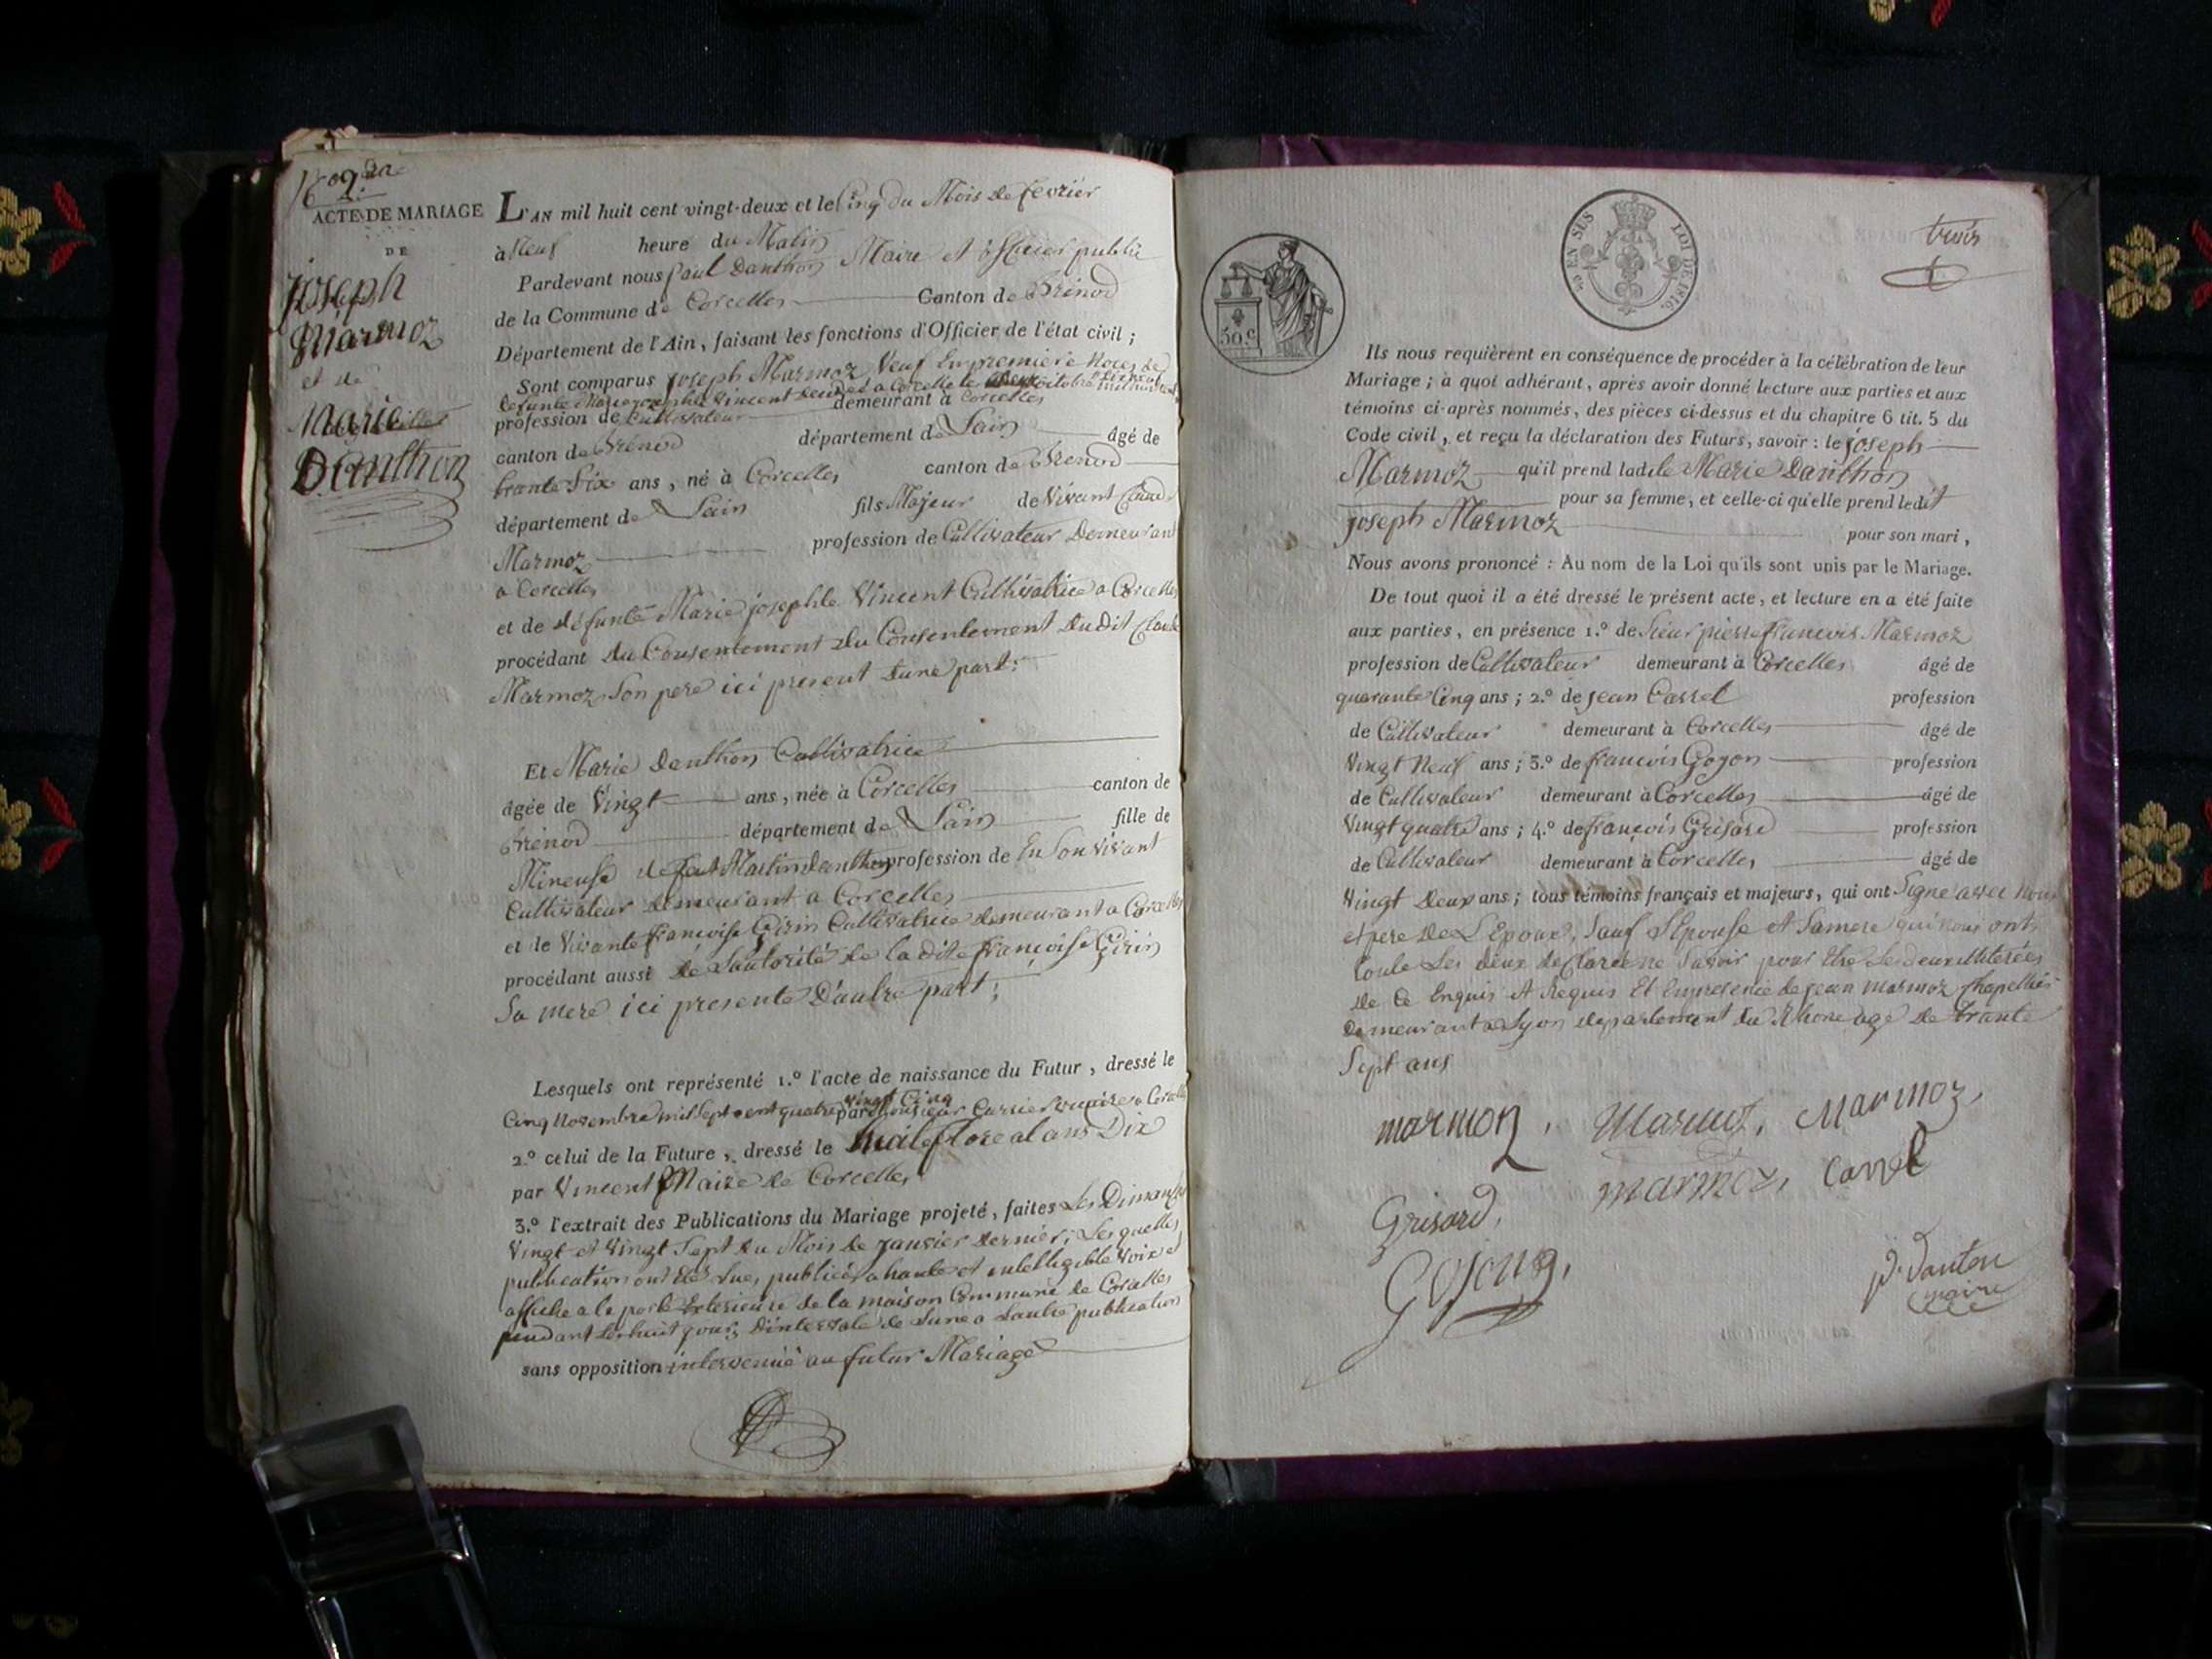 2.
ACTE DE MARIAGE
DE
Joseph
Marmoz
et de
Marie
Danthon
L'AN mil huit cent vingt-deux et le Cinq du Mois de fevrier
à Neuf heure du Matin
Pardevant nous paul Danthon Maire et officier public
de la Commune de Corcelles Canton de Brénod
Département de l'Ain, faisant les fonctions d'Officier de l'état civil ;
Sont comparus joseph Marmoz Veuf En premiere Noces de
Defunte Marie josephte Vincent a Corcelle le octobre
profession de Cultivateur demeurant à Corcelles
canton de Brénod département de Lain âgé de
trante Six ans, né à Corcelles canton de Brenod
département de Lain fils Majeur de Vivant Claude
Marmoz profession de Cultivateur Demeurant
a Corcelles
et de défunte Marie josephte Vincent Cultivatrice a Corcelles
procédant du Consentement du Consentement Dudit Claude
Marmoz Son pere ici present Dune part :
Et Marie Danthon Cultivatrice
âgée de Vingt ans, née à Corcelles canton de
Brénod département de Lain fille de
Mineuse de feut Martin danthon profession de En Son Vivant
Cultivateur demeurant a Corcelles
et de Vivante françoise Girin Cultivatrice demeurant a Corcelles
procédant aussi de Lautorité de la dite françoise Girin
Sa mere ici presente D'autre part ;
Lesquels ont représenté 1.º l'acte de naissance du Futur, dressé le
Vingt Cinq
Cinq Novembre mil Sept cent quatre par Monsieur vicaire a Corcelles
2.º celui de la Future, dressé le huit floreal ans Dix
par Vincent Maire de Corcelles
3.º l'extrait des Publications du Mariage projeté, faites Les Dimanche
Vingt et Vingt Sept du Mois de Janvier dernier ; Lesquelles
publication ont Eté Lue, publiée a haute et intelligible Voix et
affiche a la porte Exterieure de la maison Commune de Corcelles
pendant Les huit jours D'intervale de Lune a Lautre publication
sans opposition intervenüe au futur Mariage
50 C
EN SUS
LOI DE 1816.
trois
Ils nous requièrent en conséquence de procéder à la célébration de leur
Mariage ; à quoi adhérant, après avoir donné lecture aux parties et aux
témoins ci-après nommés, des pièces ci-dessus et du chapitre 6 tit. 5 du
Code civil, et reçu la déclaration des Futurs, savoir : le joseph
Marmoz qu'il prend ladite Marie Danthon
pour sa femme, et celle-ci qu'elle prend ledit
joseph Marmoz
pour son mari,
Nous avons prononcé : Au nom de la Loi qu'ils sont unis par le Mariage.
De tout quoi il a été dressé le présent acte, et lecture en a été faite
aux parties, en présence 1.º de Sieur pierre françois Marmoz
profession de Cultivateur demeurant à Corcelles âgé de
quarante Cinq ans ; 2.º de jean Carrel profession
de Cultivateur demeurant à Corcelles âgé de
Vingt Neuf ans ; 3.º de françois Goyon profession
de Cultivateur demeurant à Corcelles âgé de
Vingt quatre ans ; 4.º de françois Grisard profession
de Cultivateur demeurant à Corcelles âgé de
Vingt Deux ans ; tous témoins français et majeurs, qui ont Signe avec Nous
et pere de L'Epoux, Sauf L'Epouse et Samere qui nous ont
toute Les deux declaré ne Savoir pour Etre Les deux
de Ce Enquis et Requis Et Enpresence de jean Marmoz Chapellier
Demeurant a Lyon departement du Rhone age de trante
Sept ans
marmoz, Marmoz, Marmoz,
marmoz, Carrel
Grisard,
Goyong,
p. Danton
maire